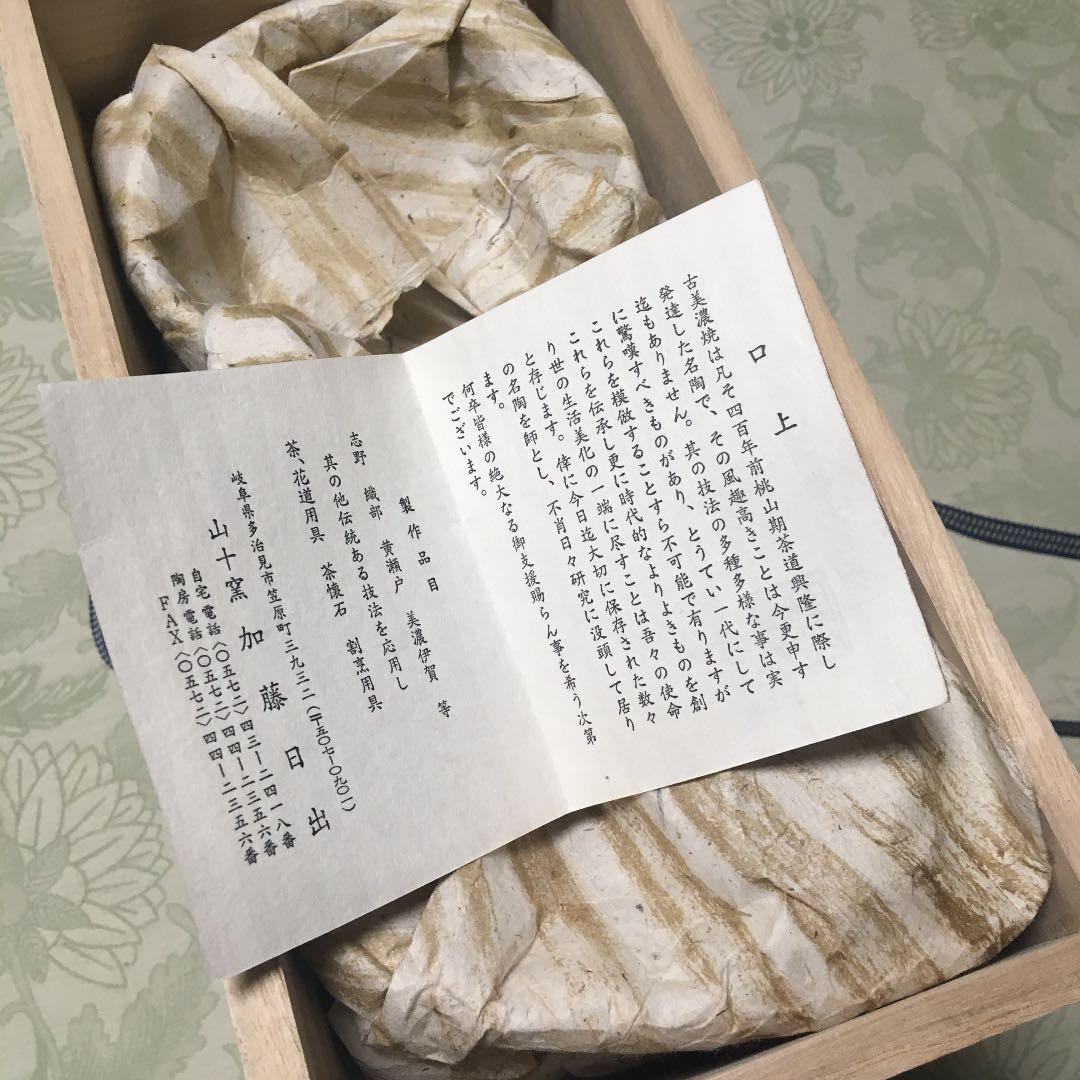 口上
古美濃焼は凡そ四百年前桃山期茶道興隆に際し
発達した名陶で、その風趣高きことは今更申す
迄もありません。其の技法の多種多様な事は実
に驚嘆すべきものがあり、とうてい一代にして
これらを模倣することすら不可能で有りますが
これらを伝承し更に時代的なよりよきものを創
り世の生活美化の一端に尽すことは吾々の使命
と存じます。倖に今日迄大切に保存された数々
の名陶を師とし、不肖日々研究に没頭して居り
ます。
何卒皆様の絶大なる御支援賜らん事を希う次第
でございます。
製作品目
志野 織部 黄瀬戸 美濃伊賀 等
其の他伝統ある技法を応用し
茶、花道用具 茶懐石 割烹用具
岐阜県多治見市笠原町三九三二(〒五〇七ー〇九〇一)
山十窯 加藤日出
自宅電話〈〇五七二〉四三ー二四一八番
陶房電話〈〇五七二〉四四ー二三五六番
FAX〈〇五七二〉四四ー二三五六番